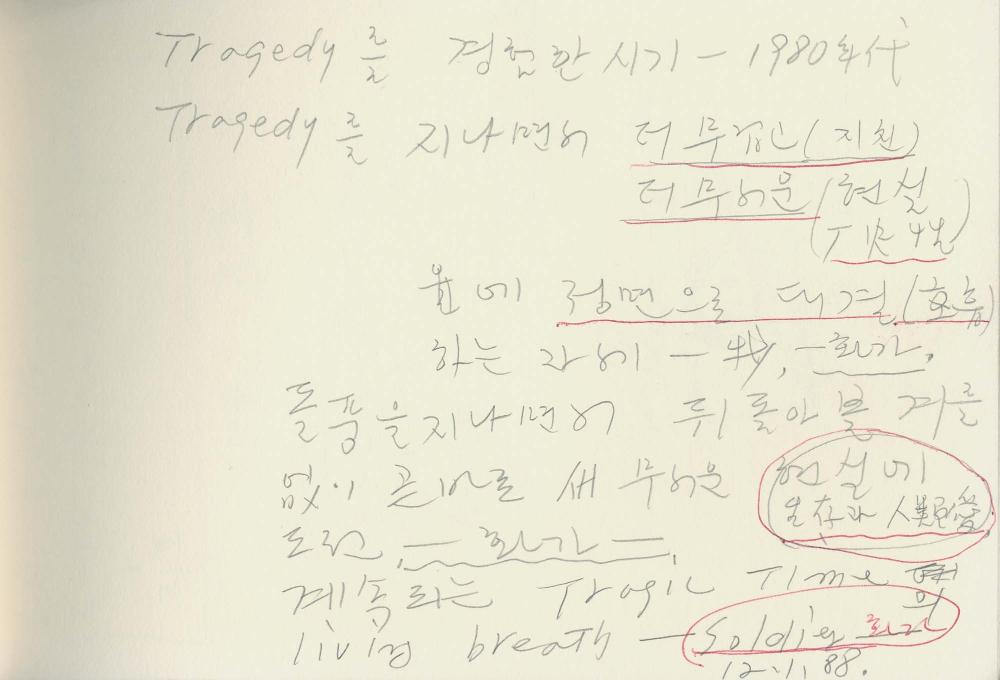 Tragedy를 경험한 시기 - 1980年代
Tragedy를 지나면서 더 무겁고(지친)
더 무서운 (현실
고에 정면으로 대결(호흡)
하는 자세 - 我, -화가.
돌풍을 지나면서 뒤돌아 볼 겨를
없이 곧바로 새 무서운 현실에
生存과 人類愛
도전, - 화가 -,
계속되는 Tragic Time의
living breath - Soldier 화가
12.1.88.